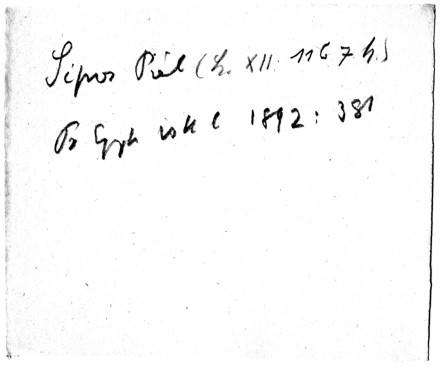 Sipos Pál (L. XII. 1167 h.)
Pr Egyh isk l 1892: 381